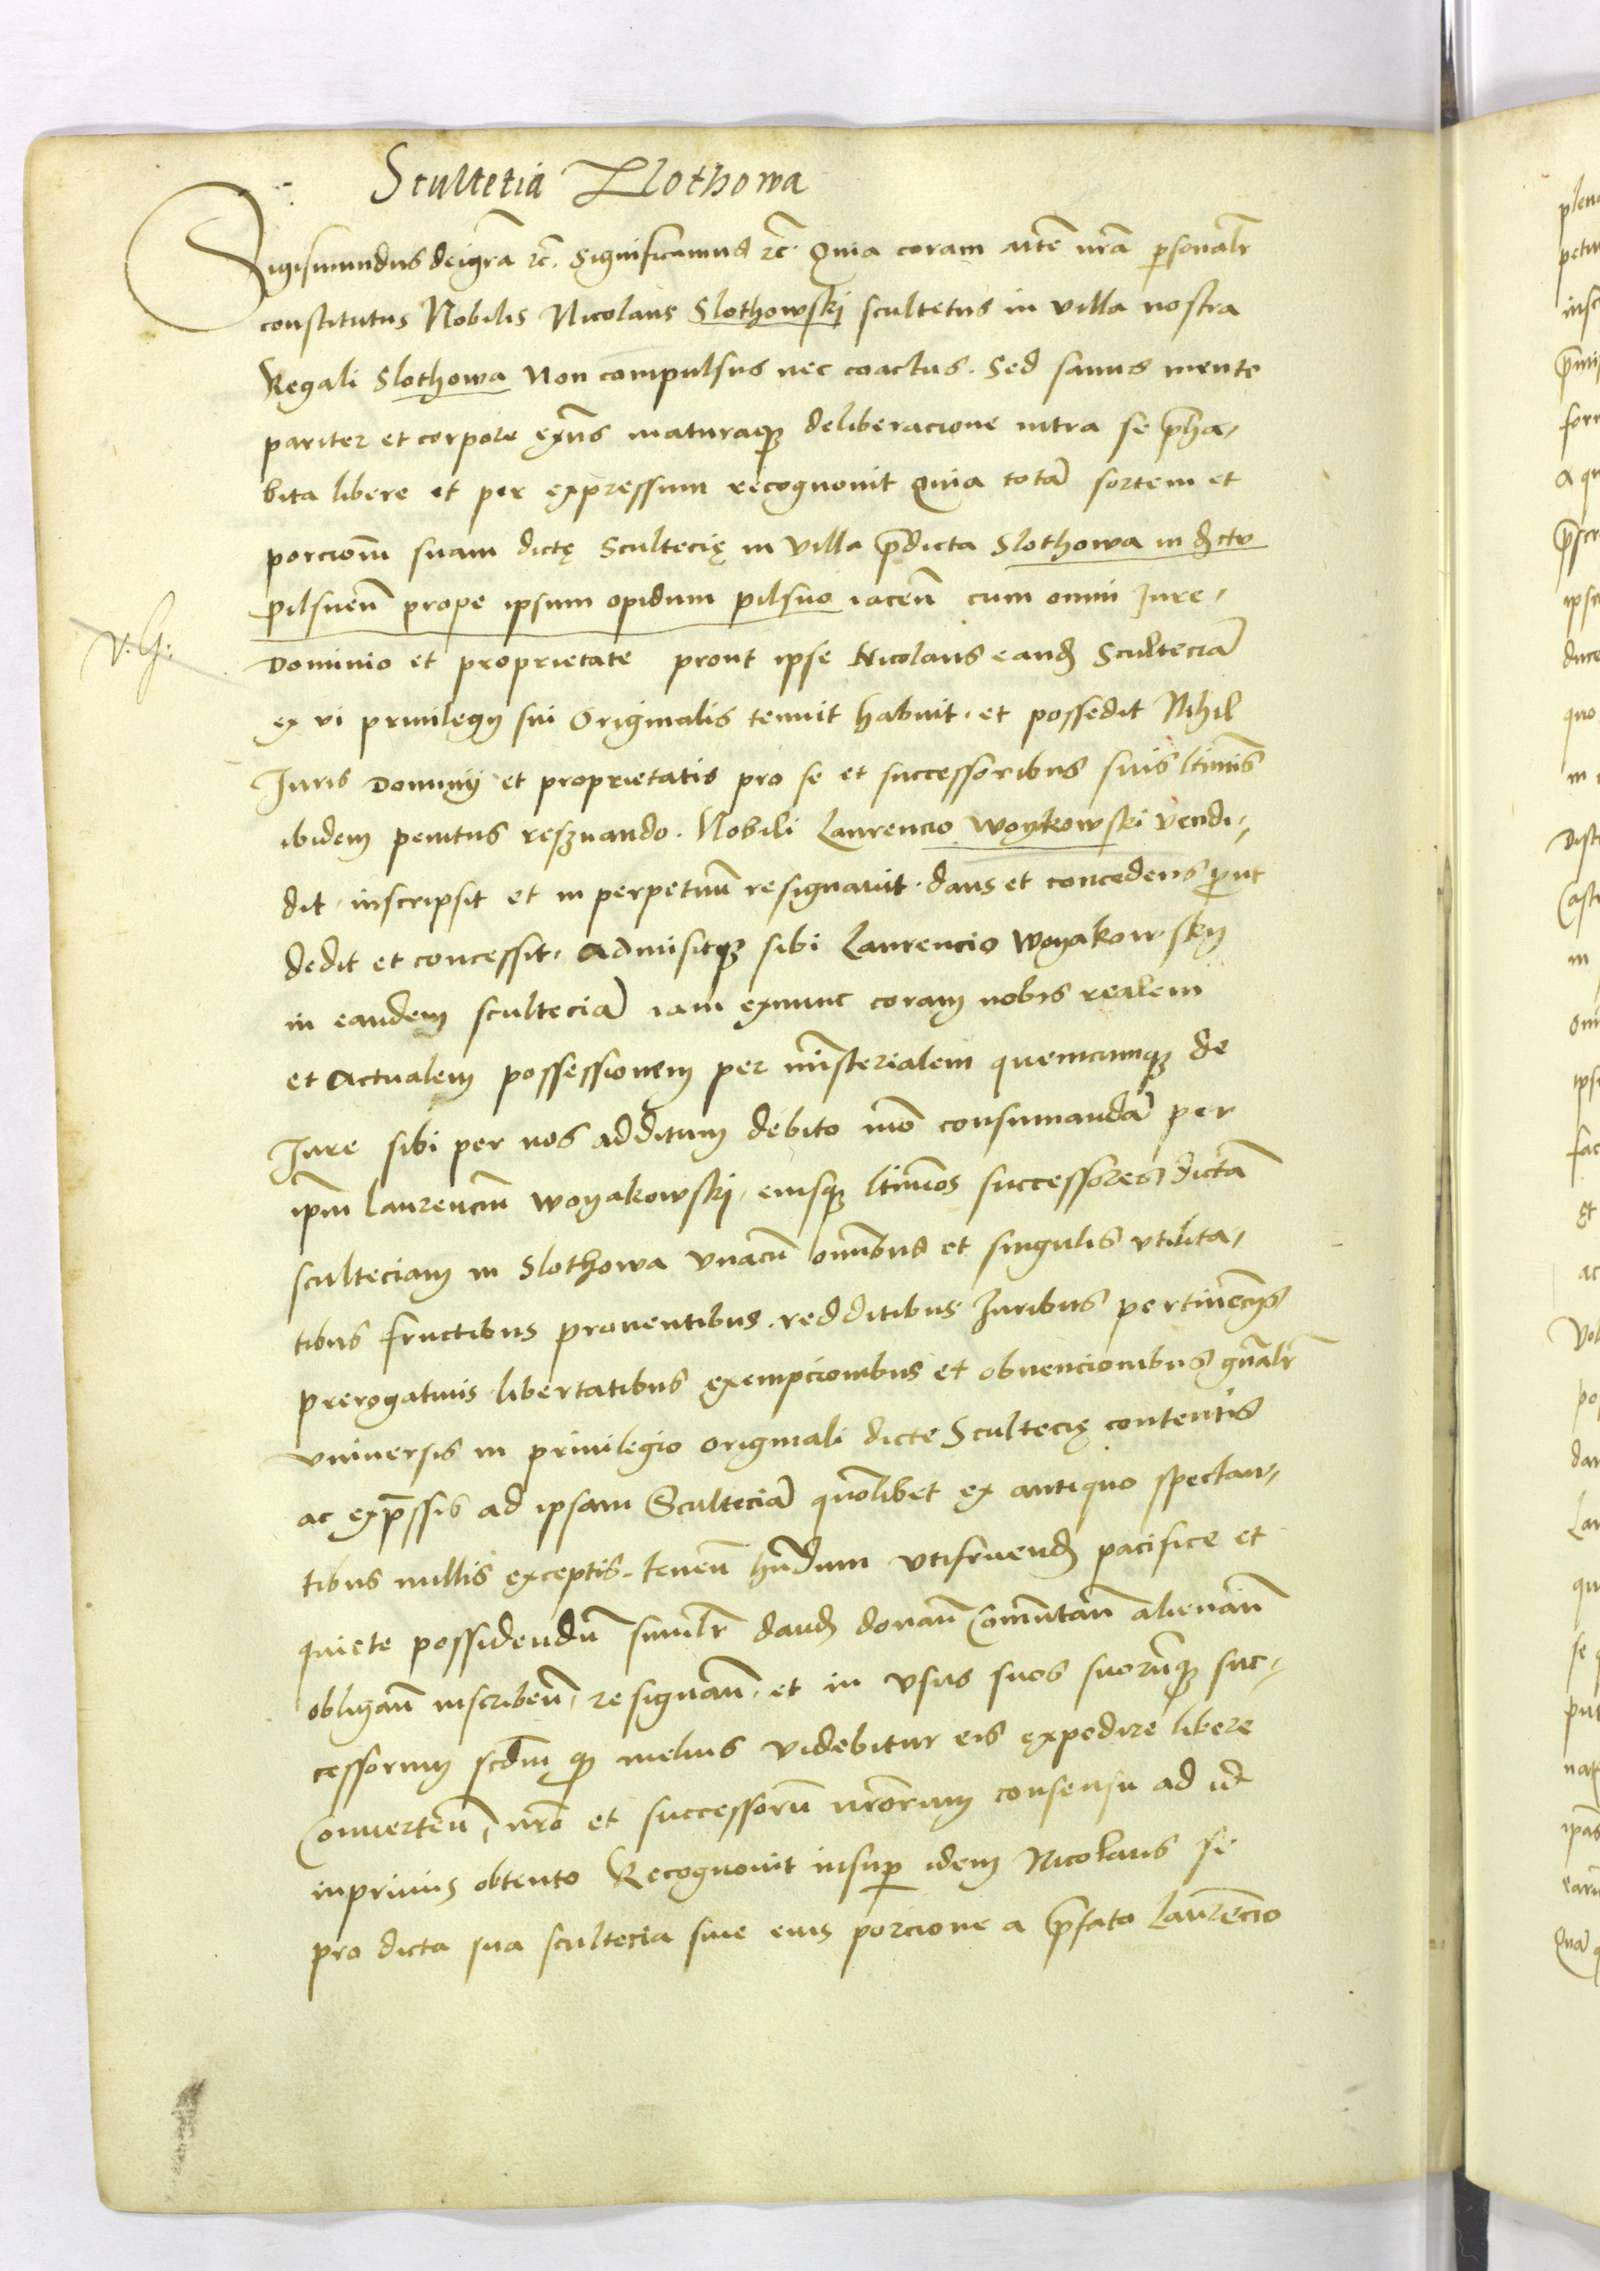 Scultetia Zlothowa
Sigismundus dei gra rc. Significamus rc Quia coram mte nra personalr
constitutus Nobilis Nicolaus Slothowski scultetus in villa nostra
Regali Slothowa Non compulsus nec coactus. Sed sanus mente
pariter et corpore exns maturaque deliberacione intra se preha-
bita libere et per expressum recognovit Quia totam sortem et
porcionem suam dictę Sculteciȩ in villa predicta Slothowa in dctu
pilsnen prope ipsum opidum pilsno iacen cum omni Jure.
Dominio et proprietate prout ipse Nicolaus eandem Scultecia
ex vi privilegij sui Originalis tenuit habuit. et possedit Nihil
Juris Dominij et proprietatis pro se et successoribus suis ltimis
ibidem penitus reservando. Nobili Laurencio Woykowski vendi-
dit. inscripsit et in perpetuum resignavit. dans et concedens prout
dedit et concessit. Admisitque sibi Laurencio Woyakowsky
in eandem scultecia iam exnunc coram nobis realem
et Actualem possessionem per ministerialem quemcumque de
Jure sibi per nos additum debito mo consumanda per
ipm Laurenciu Woyakowski. eiusque ltimos successores dicta
sculteciam in Slothowa vnacu omnibus et singulis vtilita-
tibus fructibus proventibus. redditibus Juribus pertinencijs
prerogativis libertatibus exempcionibus et obvencionibus gnalr
vniversis in privilegio originali dicte Sculteciȩ contentis
ac expressis ad ipsam Scultecia quolibet ex antiquo spectan-
tibus nullis exceptis. tenen hndum vtifruend pacifice et
quiete possidendu similr dand donan Comutan alienan
obligan inscriben. resignan. et in vsus suos suorumque suc-
cessorum scdm quod melius videbitur eis expedire libere
Converten, nro et successoru nrorum consensu ad id
inprimis obtento Recognovit insuper idem Nicolaus se
pro dicta sua scultecia sive eius porcione a prefato Laurencio